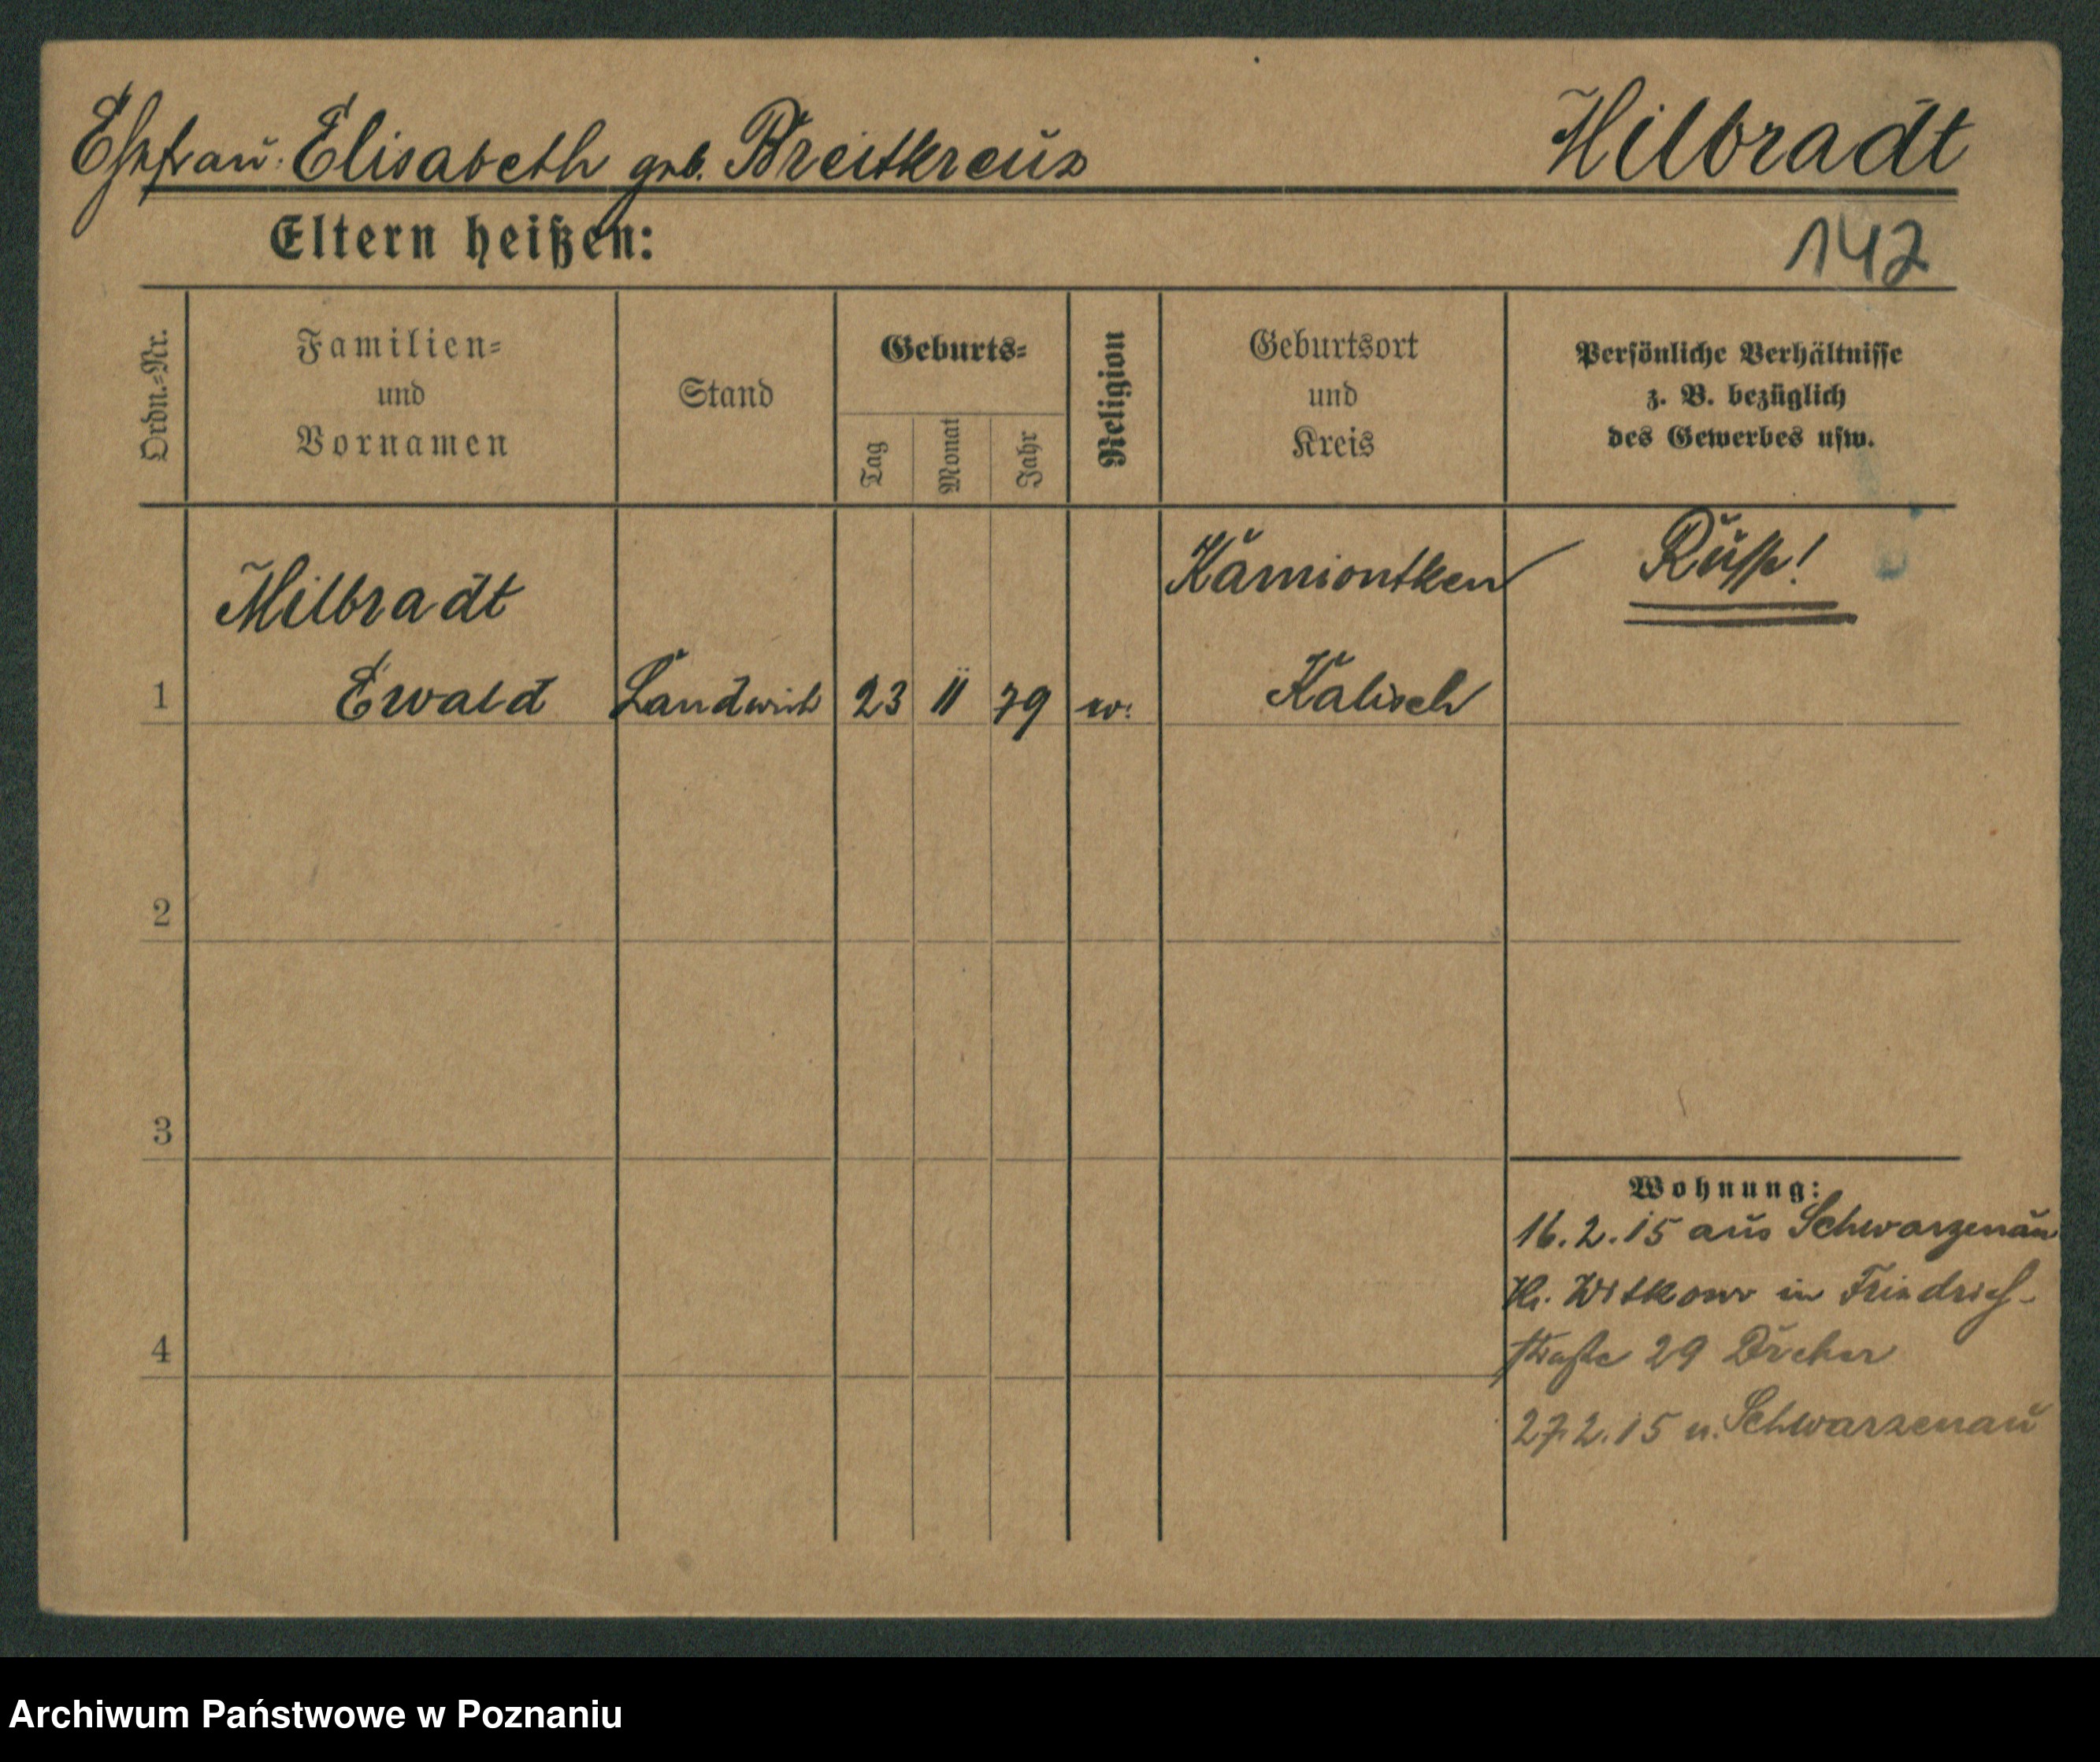 Ehefrau: Elisabeth geb. Breitkreuz
Milbradt
Eltern heißen:
142
Ordn.=Nr.
Familien=
und
Vornamen
Stand
Geburts=
Tag
Monat
Jahr
Religion
Geburtsort
und
Kreis
Persönliche Verhältnisse
z. B. bezüglich
des Gewerbes usw.
1
Milbradt
Ewald
Landwirt
23
11
79
Kamiontken
Kalisch
Russe!
2
3
4
Wohnung:
16.2.15 aus Schwarzenau
Kr. Witkowo in Friedrich-
straße 29
27.2.15 n. Schwarzenau
Archiwum Państwowe w Poznaniu